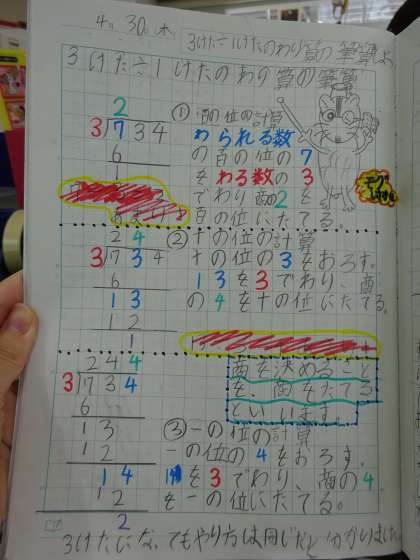 4月30日(木)
3けた÷1けたのわり算の筆算
3けた÷1けたのわり算の筆算
2
3)734
6
1
①百の位の計算
わられる数
の百の位の7
をわる数の3
でわり商2を
百の位にたてる。
24
3)734
6
13
12
1
②十の位の計算
十の位の3をおろす。
13を3でわり、商
の4を十の位にたてる。
商を決めること
を、商をたてる
といいます。
244
3)734
6
13
12
14
12
2
③一の位の計算
一の位の4をおろす。
14を3でわり、商の4
を一の位にたてる。
3けたになってもやり方は同じだと分かりました